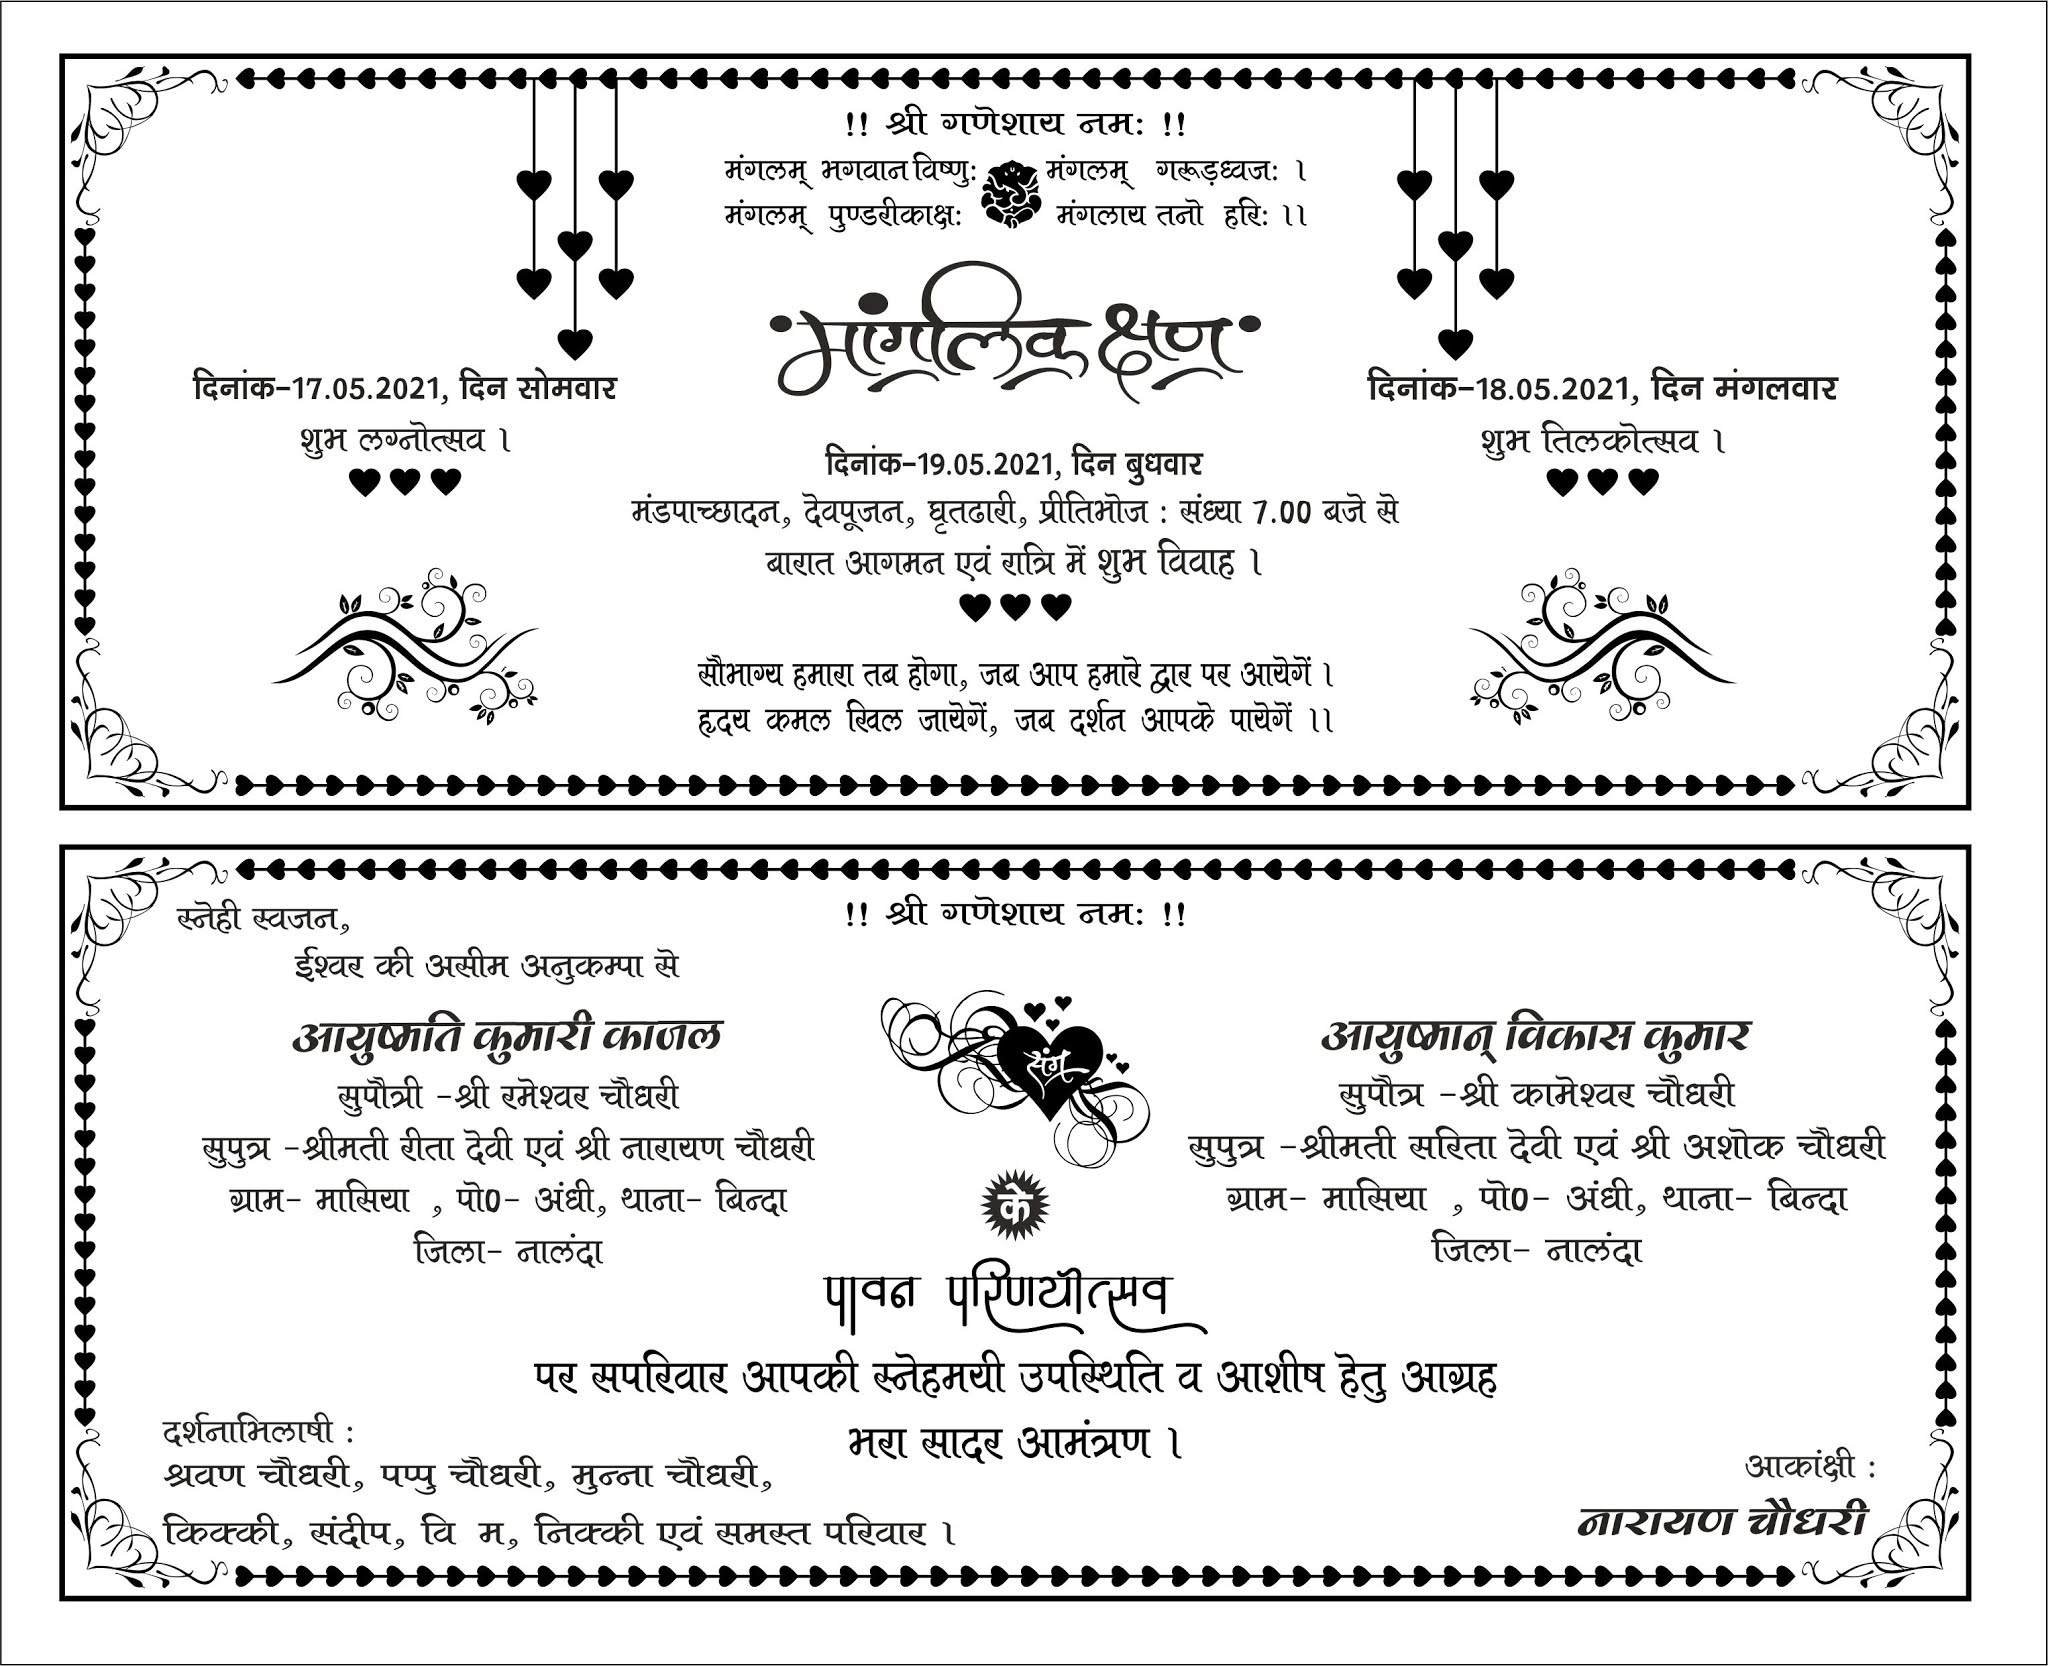 !! श्री गणेशाय नमः !!
मंगलम् भगवान विष्णुः मंगलम् गरूड़ध्वजः ।
मंगलम् पुण्डरीकाक्षः मंगलाय तनो हरिः ।।
मांगलिक क्षण
दिनांक-17.05.2021, दिन सोमवार
शुभ लग्नोत्सव ।
दिनांक-18.05.2021, दिन मंगलवार
शुभ तिलकोत्सव ।
दिनांक-19.05.2021, दिन बुधवार
मंडपाच्छादन, देवपूजन, घृतढारी, प्रीतिभोज : संध्या 7.00 बजे से
बारात आगमन एवं रात्रि में शुभ विवाह ।
सौभाग्य हमारा तब होगा, जब आप हमारे द्वार पर आयेगें ।
हृदय कमल खिल जायेगें, जब दर्शन आपके पायेगें ।।
!! श्री गणेशाय नमः !!
स्नेही स्वजन,
ईश्वर की असीम अनुकम्पा से
आयुष्मति कुमारी काजल
सुपौत्री -श्री रमेश्वर चौधरी
सुपुत्र -श्रीमती रीता देवी एवं श्री नारायण चौधरी
ग्राम- मासिया , पो0- अंधी, थाना- बिन्दा
जिला- नालंदा
संग
आयुष्मान् विकास कुमार
सुपौत्र -श्री कामेश्वर चौधरी
सुपुत्र -श्रीमती सरिता देवी एवं श्री अशोक चौधरी
ग्राम- मासिया , पो0- अंधी, थाना- बिन्दा
जिला- नालंदा
के
पावन परिणयोत्सव
पर सपरिवार आपकी स्नेहमयी उपस्थिति व आशीष हेतु आग्रह
भरा सादर आमंत्रण ।
दर्शनाभिलाषी :
श्रवण चौधरी, पप्पु चौधरी, मुन्ना चौधरी,
किक्की, संदीप, वि म, निक्की एवं समस्त परिवार ।
आकांक्षी :
नारायण चौधरी